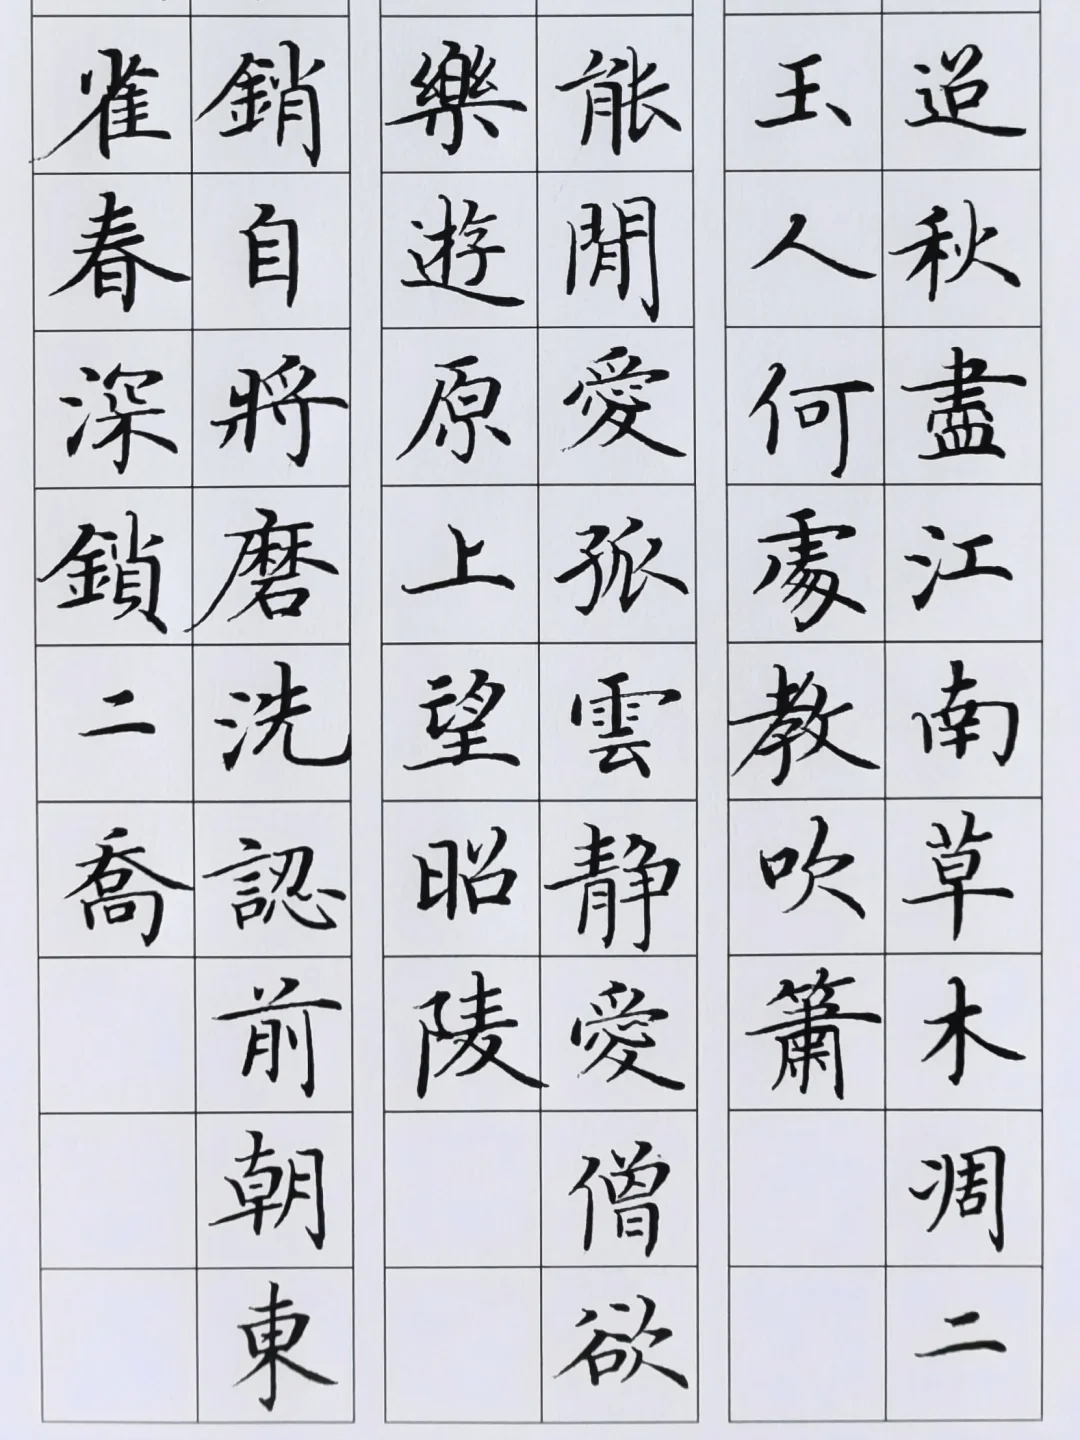 迢秋盡江南草木凋二
玉人何處教吹簫
能閒愛孤雲静愛僧欲
樂遊原上望昭陵
銷自將磨洗認前朝東
雀春深鎖二喬